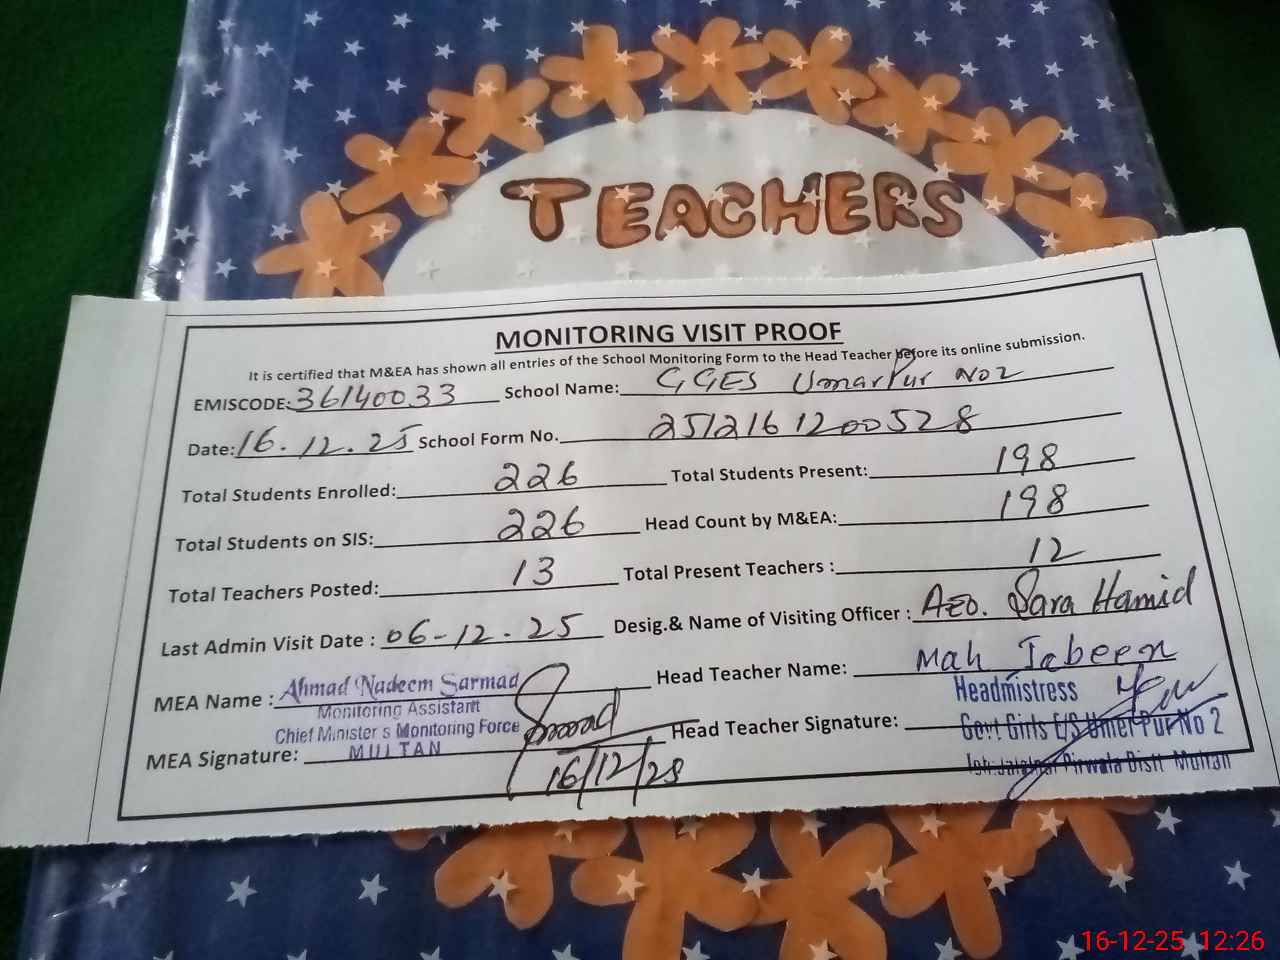 TEACHERS
MONITORING VISIT PROOF
It is certified that M&EA has shown all entries of the School Monitoring Form to the Head Teacher before its online submission.
EMISCODE: 36140033 School Name: GGES Umar Pur No 2
Date: 16.12.25 School Form No. 251216 1200528
Total Students Enrolled: 226 Total Students Present: 198
Total Students on SIS: 226 Head Count by M&EA: 198
Total Teachers Posted: 13 Total Present Teachers : 12
Last Admin Visit Date : 06-12.25 Desig.& Name of Visiting Officer : AEO. Sara Hamid
MEA Name : Ahmad Nadeem Sarmad Head Teacher Name: Mah Jabeen
Monitoring Assistant
Chief Minister s Monitoring Force
MULTAN
MEA Signature: Head Teacher Signature:
16/12/25
Headmistress
Govt Girls E/S Umer Pur No 2
Jalalpur Pirwala Distt Multan
16-12-25 12:26